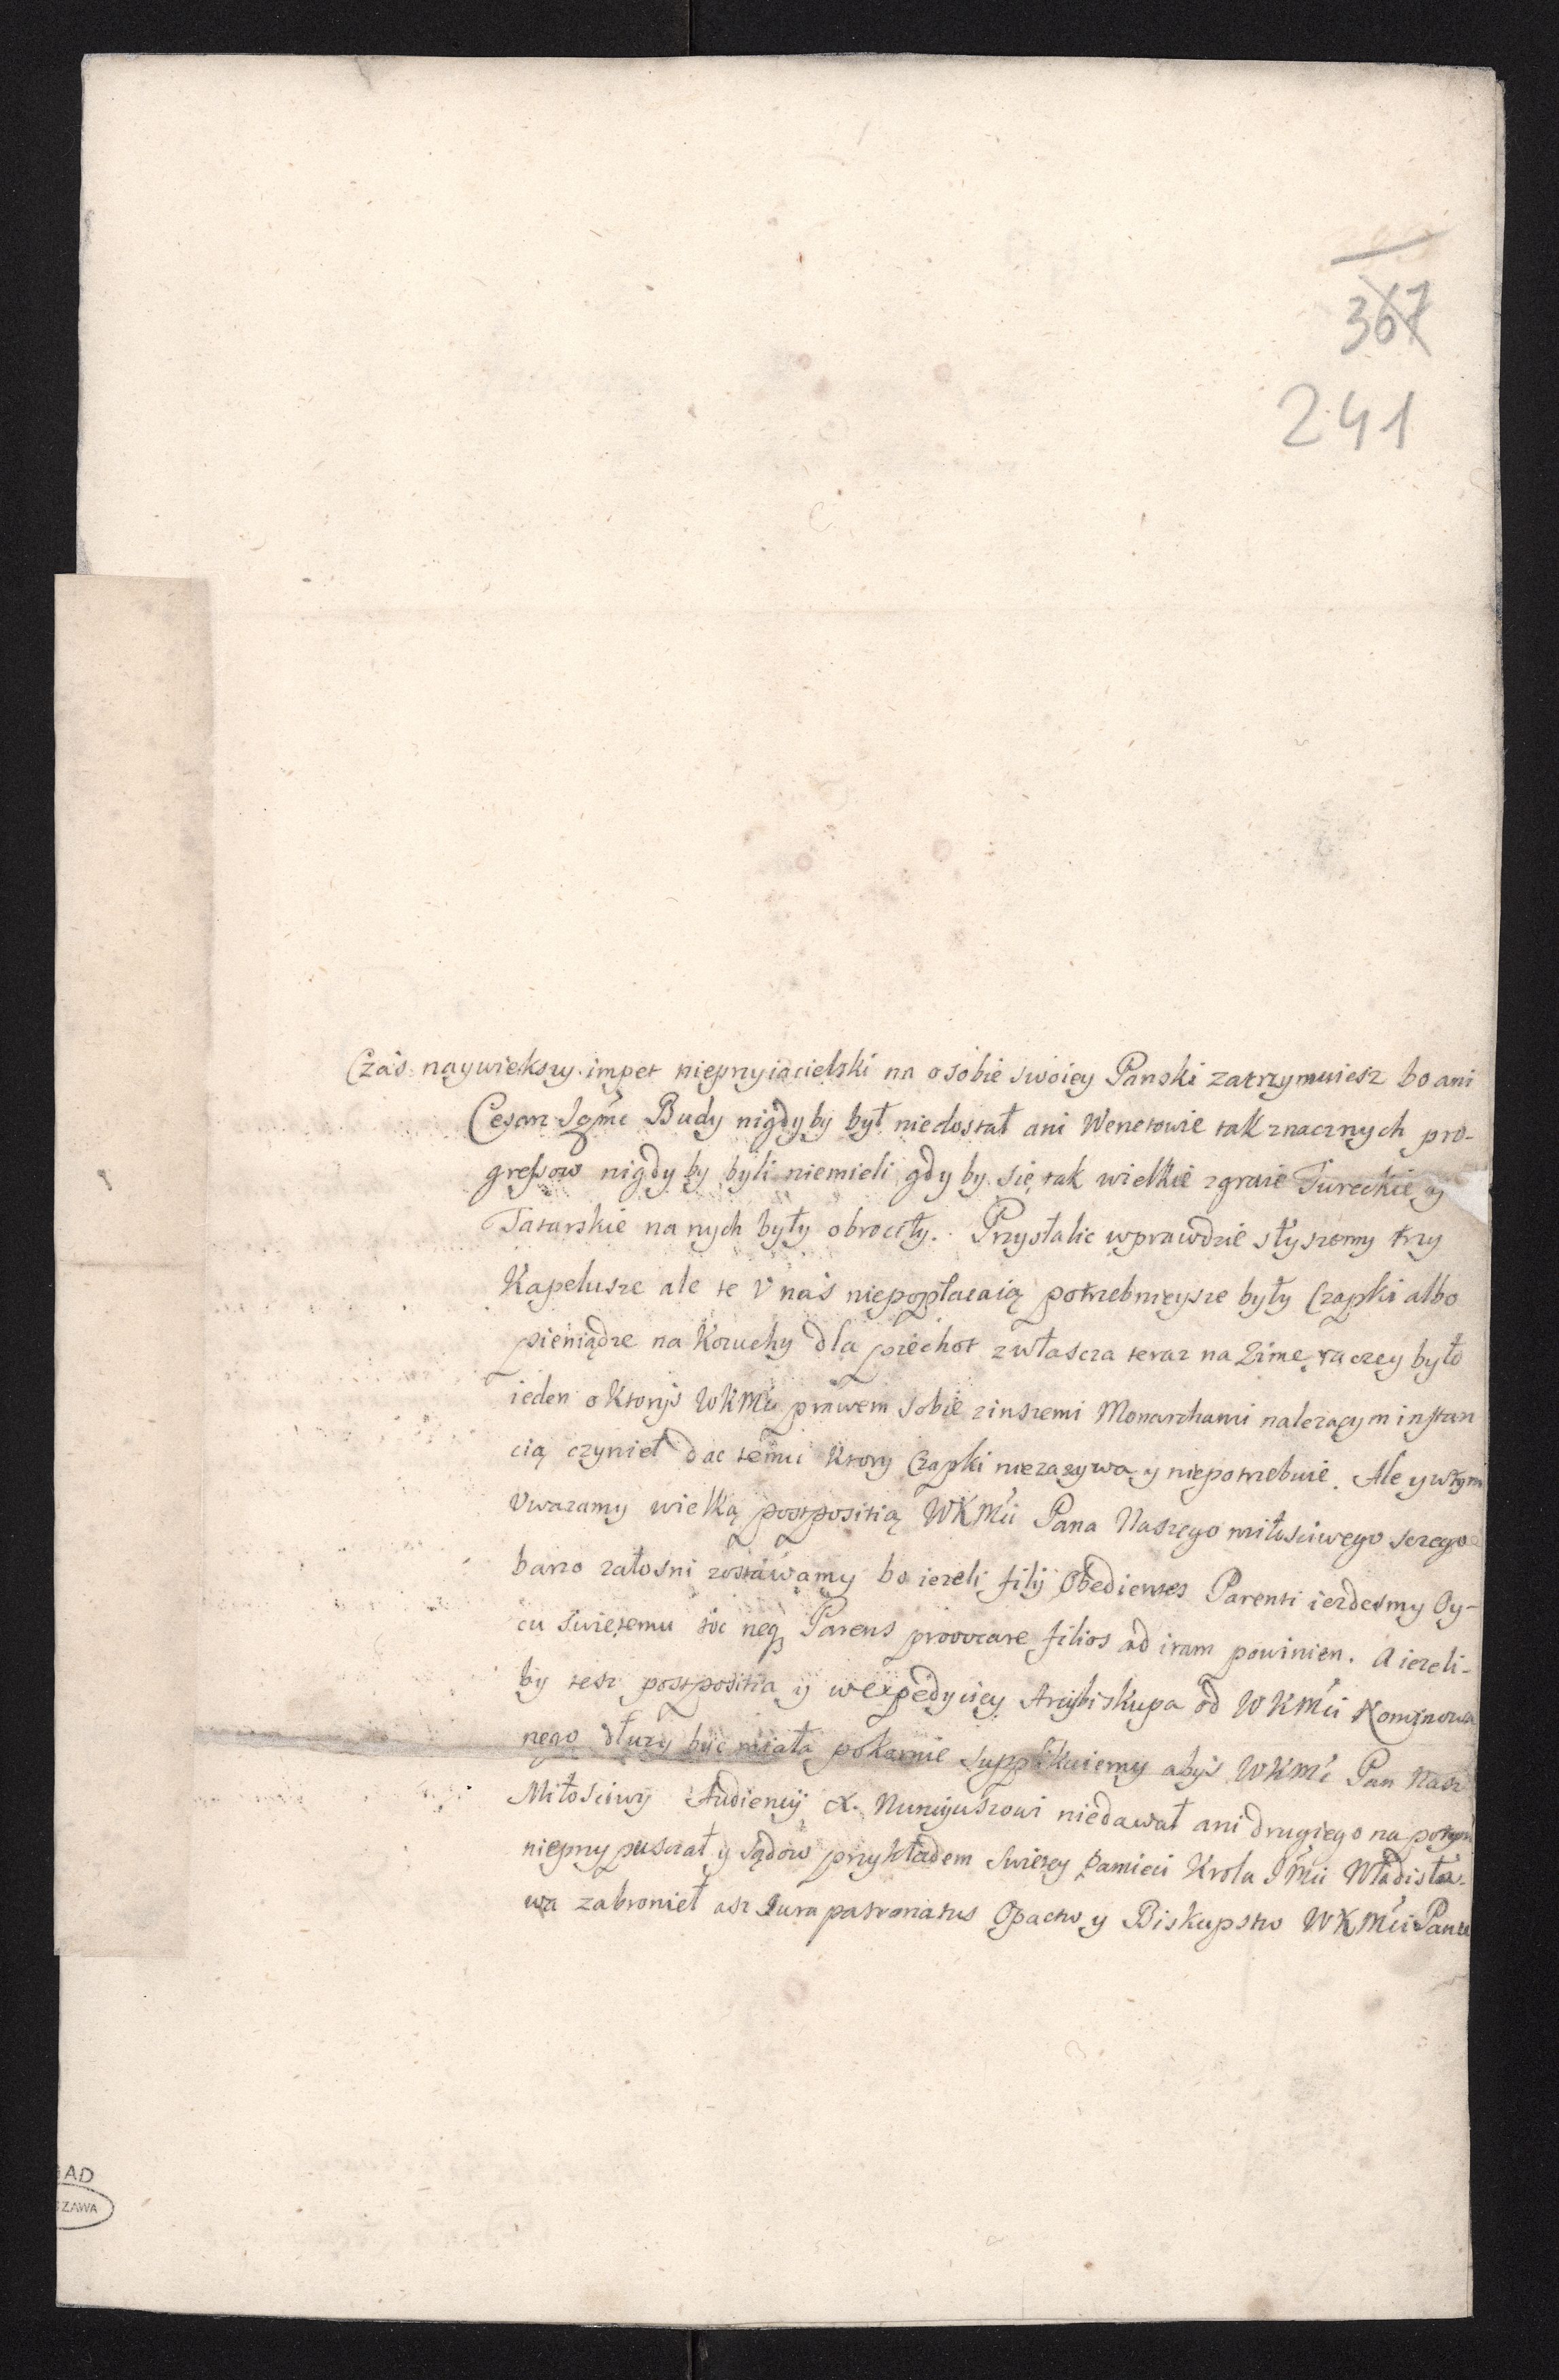 367
241
Czás naywiekszy impet nieprzyiacielski na osobie swoiey Panski zatrzymuiesz bo ani
Cesarz Jgmć Budy nigdyby był niedostał ani Wenetowie tak znacznych pro-
gresow nigdy by byli niemieli gdy by się tak wielkie zgraie Tureckie y
Tatarskie na nych były obrociły. Przysłalic wprawdzie słyszemy trzy
Kapelusze ale te v nas niepopłacaią potrzebnieysze były Czapki albo
pieniądze na Kozuchy dla piechot zwłascza teraz na Zimę raczey było
ieden o Ktorys WKMć prawem sobie zinszemi Monarchami nalezącym instan
cią czynieł dac temu Ktory Czapki niezazywa y niepotrzebuie. Ale y wtym
Vwazamy wielką postpositią WKMci Pana Naszego miłosciwego sczego
barzo załosni zostawamy bo iezeli filij Obedientes Parenti iezdesmy Oy-
cu Swietemu toc neq Parens provocare filios ad iram powinien. A iezeli-
by tesz postpositia y wexpedyciey Arcybiskupa od WKMci Nominowa
nego dłuzy być miała pokornie supplikuiemy abys WKMć Pan Nasz
Miłosciwy Audiencij X. Nuncyuszowi niedawał ani drugiego na potym
nieprzypuszczał y Sądow przykładem Swietey Pamieci Krola JMci Władisła-
wa zabronieł asz Jura patronatus Opactw y Biskupstw WKMci Panu
AD
ZAWA